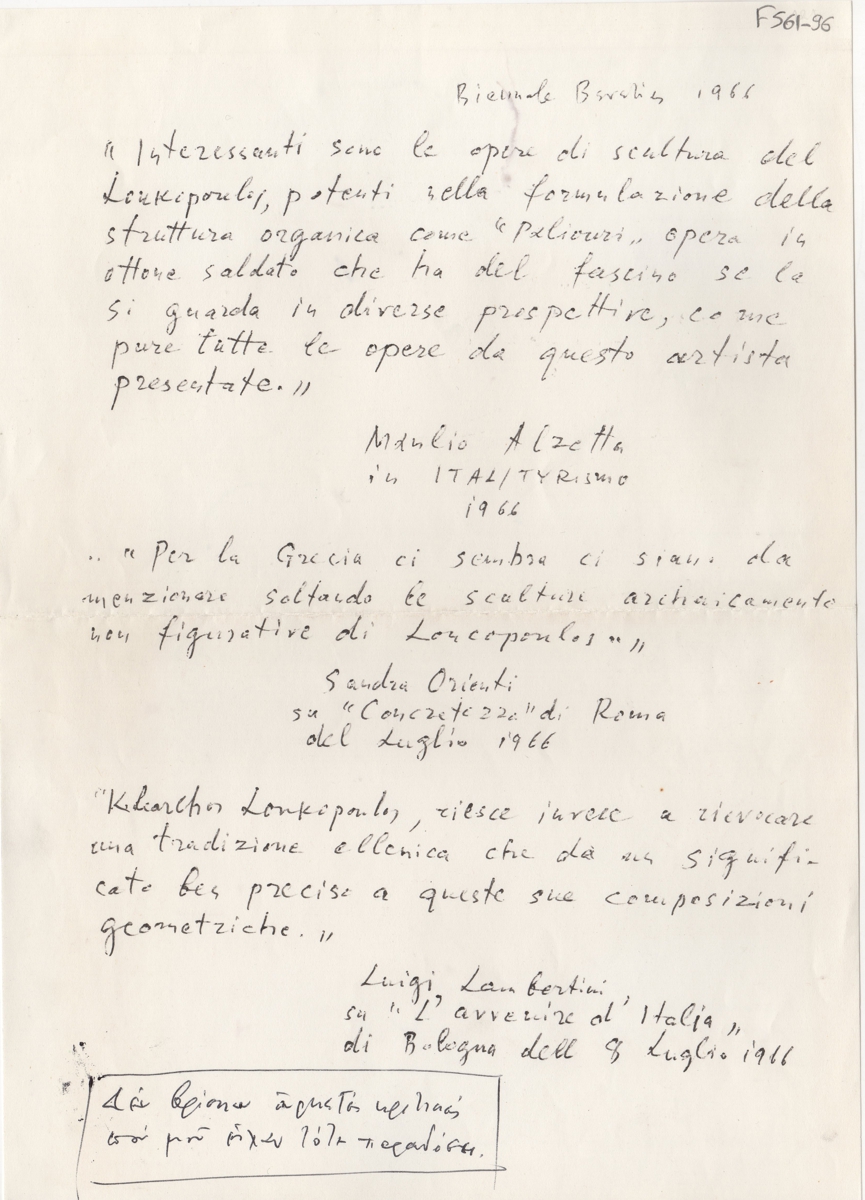 FS61-96
Biennale 1966
" Interessanti sono le opere di scultura del
Loukopoulos, potenti nella formulazione della
struttura organica come "Paliouri„ opera in
ottone saldato che ha del fascino se la
si guarda in diverse prospettive, come
pure tutte le opere da questo artista
presentate.„
Manlio Alzetta
in ITALITYRISMO
1966
.. " Per la Grecia ci sembra ci siano da
menzionare soltando le sculture archaicamente
non figurative di Loucopoulos "„
Sandra Orienti
su "Concretezza" di Roma
del Luglio 1966
"Klearchos Loukopoulos, riesce invece a rievocare
una tradizione ellenica che dà un signifi-
cato ben preciso a queste sue composizioni
geometriche.„
Luigi Lambertini,
su " L' avvenire d' Italia „
di Bologna dell 8 Luglio 1966
Δέν
πού μοῦ εἶχαν τότε